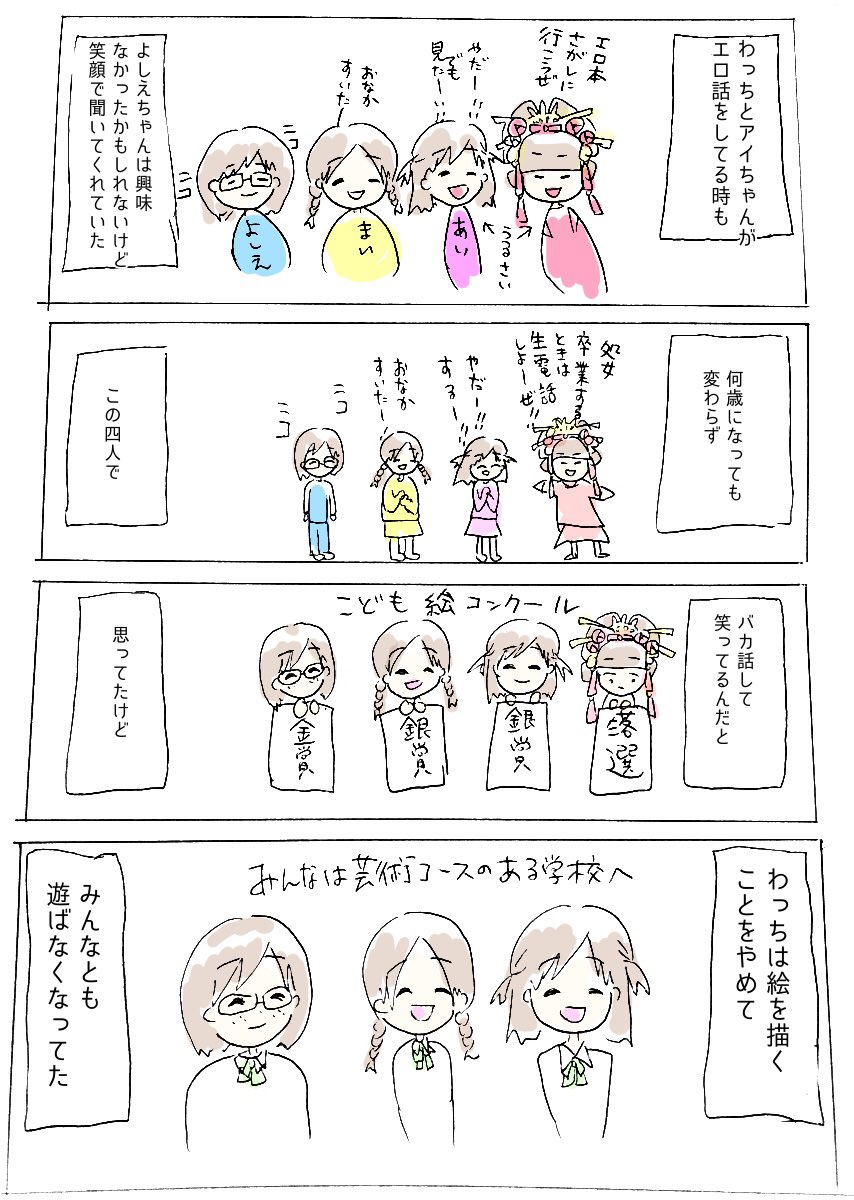 わっちとアイちゃんが
エロ話をしてる時も
エロ本
さがしに
行こうぜ
やだー!!
でも
見たーい
うるさい
おなか
すいた
あい
まい
よしえ
ニコ
ニコ
よしえちゃんは興味
なかったかもしれないけど
笑顔で聞いてくれていた
何歳になっても
変わらず
処女
卒業する
ときは
生電話
しよーぜ!!
やだー!!
するー!!
おなか
すいたー!!
ニコ
ニコ
この四人で
バカ話して
笑ってるんだと
こども絵コンクール
落選
銀賞
銀賞
金賞
思ってたけど
わっちは絵を描く
ことをやめて
みんなは芸術コースのある学校へ
みんなとも
遊ばなくなってた